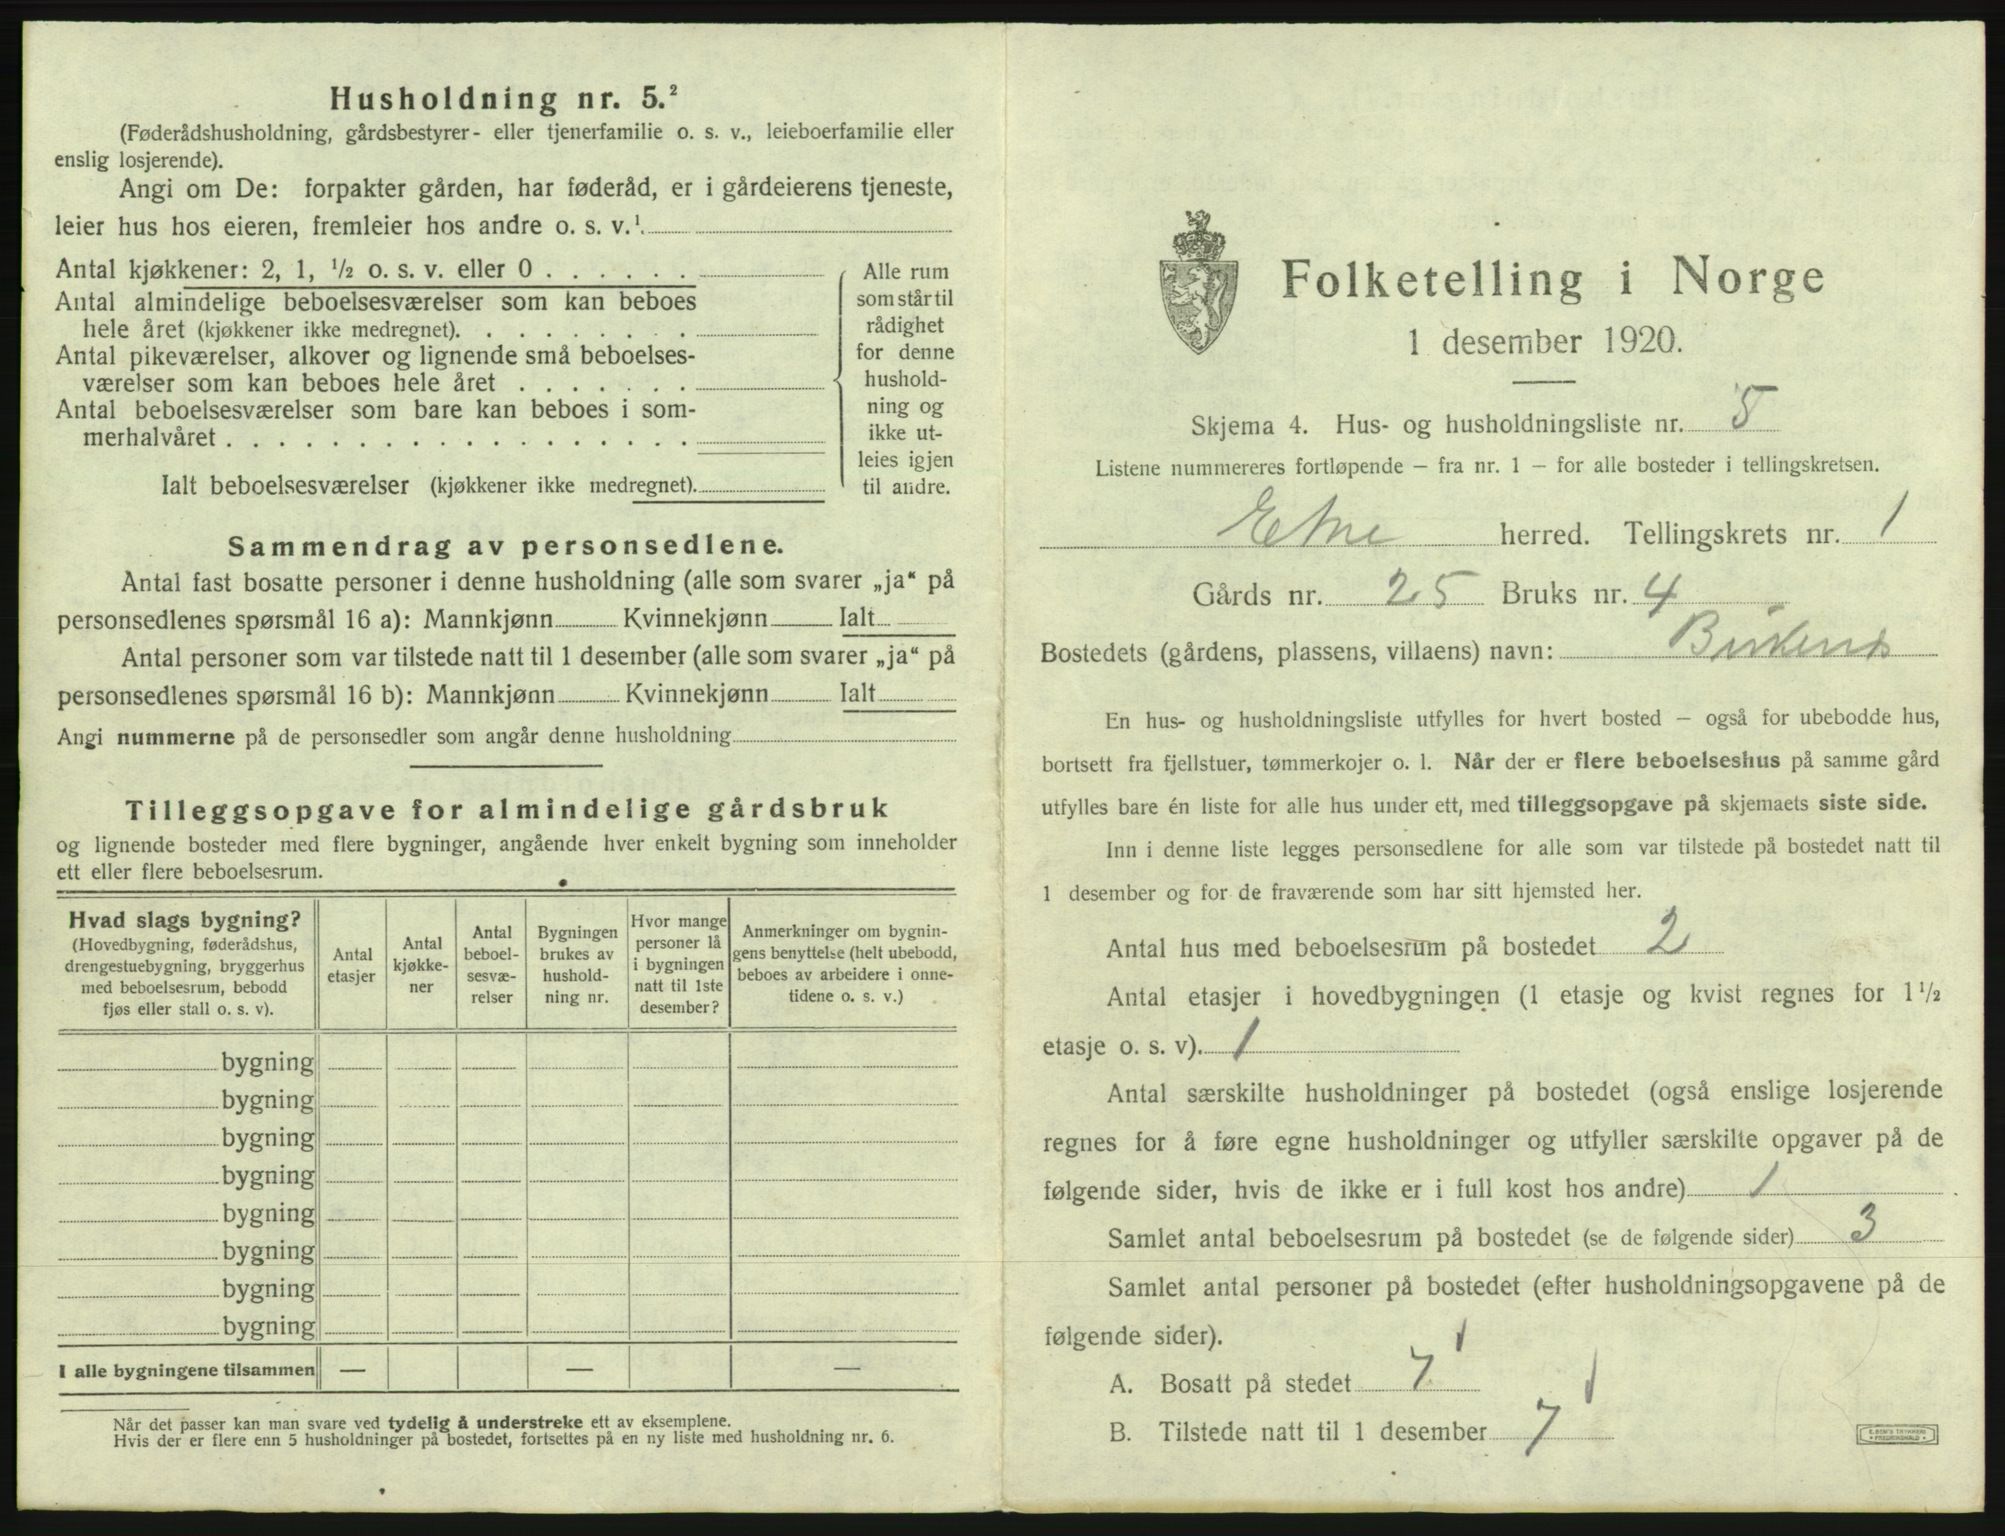 Husholdning nr. 5.²
(Føderådshusholdning, gårdsbestyrer- eller tjenerfamilie o. s. v., leieboerfamilie eller
enslig losjerende).
Angi om De: forpakter gården, har føderåd, er i gårdeierens tjeneste,
leier hus hos eieren, fremleier hos andre o. s. v.¹
Antal kjøkkener: 2, 1, ¹/₂ o. s. v. eller 0
Antal almindelige beboelsesværelser som kan beboes
hele året (kjøkkener ikke medregnet).
Antal pikeværelser, alkover og lignende små beboelses-
værelser som kan beboes hele året
Antal beboelsesværelser som bare kan beboes i som-
merhalvåret
Ialt beboelsesværelser (kjøkkener ikke medregnet).
Alle rum
som står til
rådighet
for denne
hushold-
ning og
ikke ut-
leies igjen
til andre.
Sammendrag av personsedlene.
Antal fast bosatte personer i denne husholdning (alle som svarer „ja“ på
personsedlenes spørsmål 16 a): Mannkjønn Kvinnekjønn Ialt
Antal personer som var tilstede natt til 1 desember (alle som svarer „ja“ på
personsedlenes spørsmål 16 b): Mannkjønn Kvinnekjønn Ialt
Angi nummerne på de personsedler som angår denne husholdning
Tilleggsopgave for almindelige gårdsbruk
og lignende bosteder med flere bygninger, angående hver enkelt bygning som inneholder
ett eller flere beboelsesrum.
Hvad slags bygning?
(Hovedbygning, føderådshus,
drengestuebygning, bryggerhus
med beboelsesrum, bebodd
fjøs eller stall o. s. v).
Antal
etasjer
Antal
kjøkke-
ner
Antal
beboel-
sesvæ-
relser
Bygningen
brukes av
hushold-
ning nr.
Hvor mange
personer lå
i bygningen
natt til 1ste
desember?
Anmerkninger om bygnin-
gens benyttelse (helt ubebodd,
beboes av arbeidere i onne-
tidene o. s. v.)
bygning
bygning
bygning
bygning
bygning
bygning
bygning
bygning
I alle bygningene tilsammen — — —
Når det passer kan man svare ved tydelig å understreke ett av eksemplene.
Hvis der er flere enn 5 husholdninger på bostedet, fortsettes på en ny liste med husholdning nr. 6.
Folketelling i Norge
1 desember 1920.
Skjema 4. Hus- og husholdningsliste nr. 5
Listene nummereres fortløpende — fra nr. 1 — for alle bosteder i tellingskretsen.
Etne herred. Tellingskrets nr. 1
Gårds nr. 25 Bruks nr. 4
Bostedets (gårdens, plassens, villaens) navn:
En hus- og husholdningsliste utfylles for hvert bosted — også for ubebodde hus,
bortsett fra fjellstuer, tømmerkojer o. l. Når der er flere beboelseshus på samme gård
utfylles bare én liste for alle hus under ett, med tilleggsopgave på skjemaets siste side.
Inn i denne liste legges personsedlene for alle som var tilstede på bostedet natt til
1 desember og for de fraværende som har sitt hjemsted her.
Antal hus med beboelsesrum på bostedet 2
Antal etasjer i hovedbygningen (1 etasje og kvist regnes for 1¹/₂
etasje o. s. v). 1
Antal særskilte husholdninger på bostedet (også enslige losjerende
regnes for å føre egne husholdninger og utfyller særskilte opgaver på de
følgende sider, hvis de ikke er i full kost hos andre) 1
Samlet antal beboelsesrum på bostedet (se de følgende sider) 3
Samlet antal personer på bostedet (efter husholdningsopgavene på de
følgende sider).
A. Bosatt på stedet 7
B. Tilstede natt til 1 desember 7